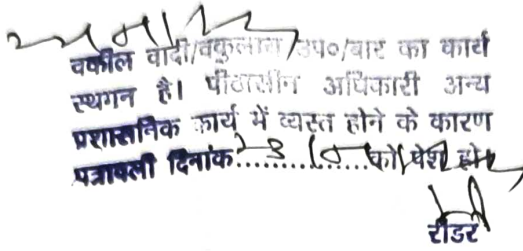 वकील वादी/वकुलाय उप०/बार का कार्य
स्थगन है। पीठासीन अधिकारी अन्य
प्रशासनिक कार्य में व्यस्त होने के कारण
पत्रावली दिनांक.................को पेश हो।
रीडर